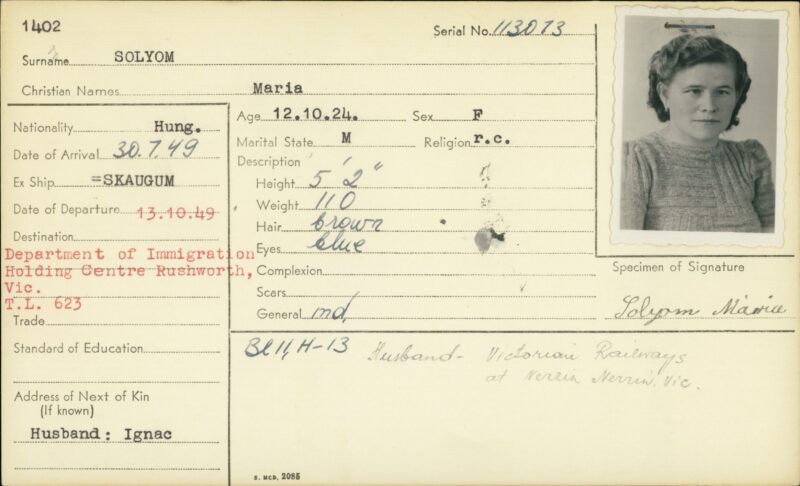 1402
Serial No. 113073
Surname SOLYOM
Christian Names Maria
Age 12.10.24. Sex F
Marital State M Religion r.c.
Description
Height 5' 2"
Weight 110
Hair brown
Eyes blue
Complexion
Scars
General md,
Nationality Hung.
Date of Arrival 30.7.49
Ex Ship =SKAUGUM
Date of Departure 13.10.49
Destination
Department of Immigration
Holding Centre Rushworth,
Vic.
T.L. 623
Trade
Standard of Education
Address of Next of Kin
(If known)
Husband: Ignac
Specimen of Signature
Solyom Mária
Bl 11, H-13
Husband - Victorian Railways
at Nerrin Nerrin, Vic.
S. MCD. 2085